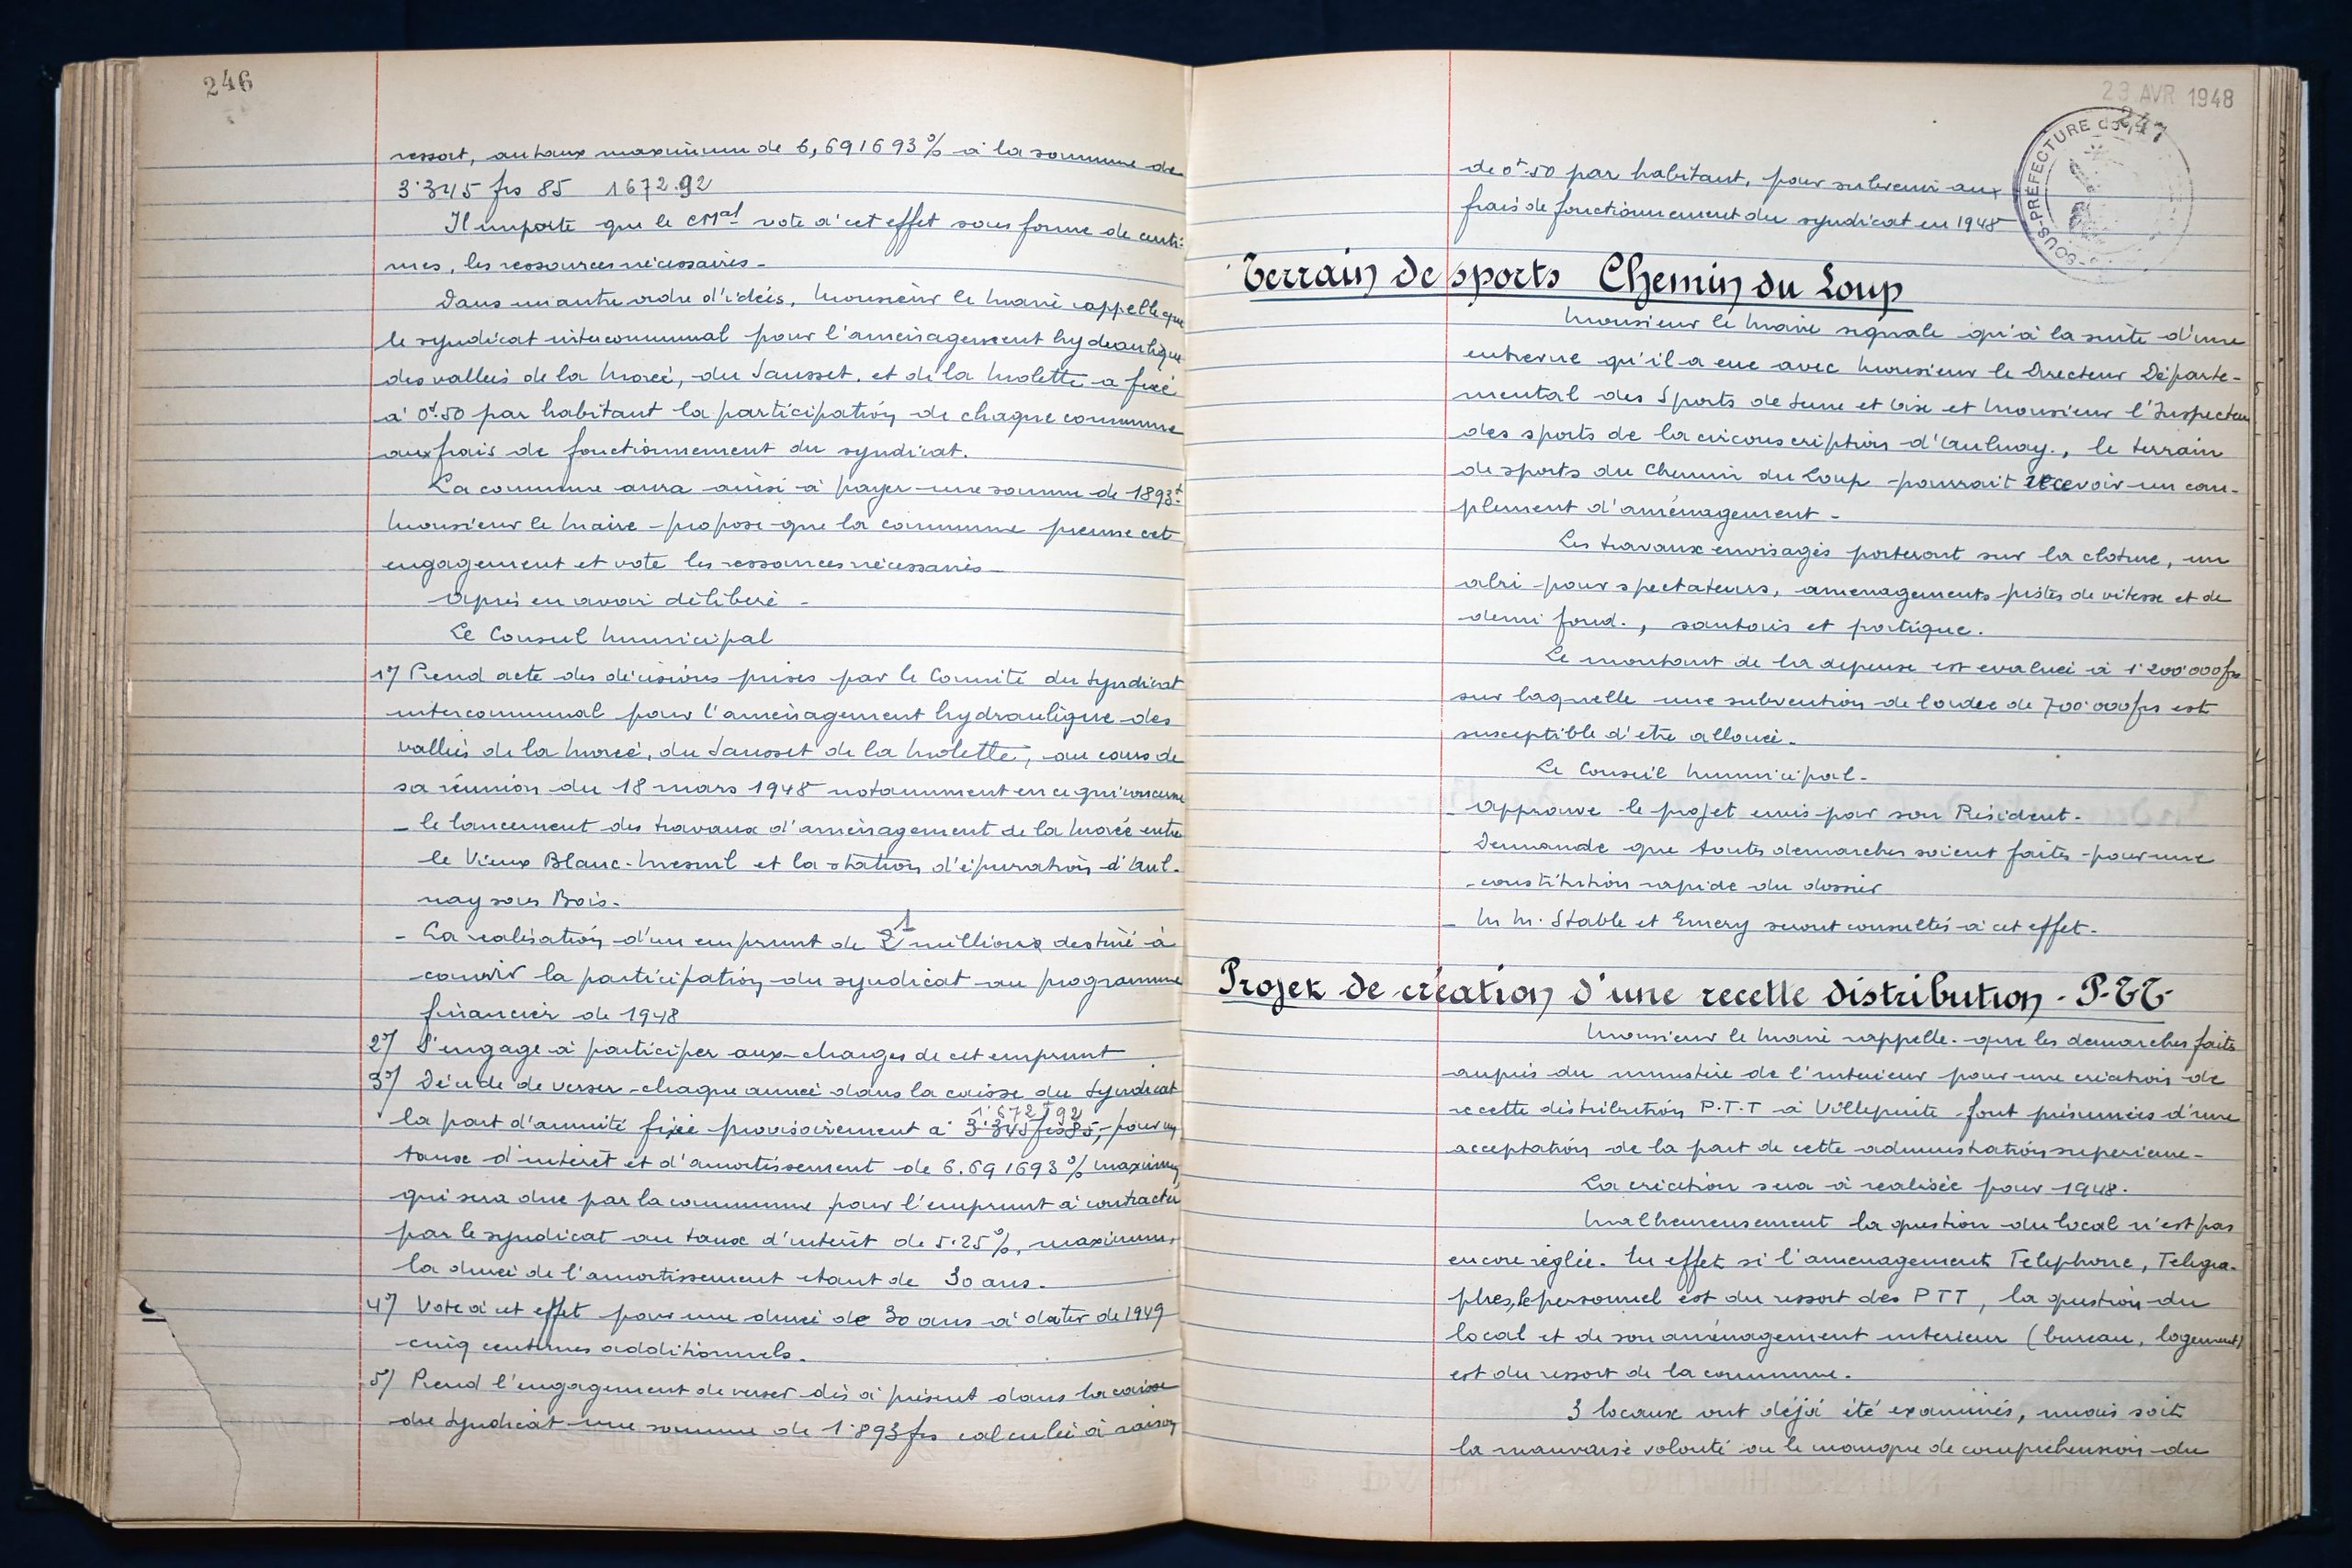 246
ressort, au taux maximum de 6,691693 % à la somme de
3.345 frs 85 1672.92
Il importe que le CMal vote à cet effet sous forme de centi-
mes, les ressources nécessaires -
Dans un autre ordre d'idées, Monsieur le Maire rappelle que
le syndicat intercommunal pour l'amenagement hydraulique
des vallées de la Morée, du Sausset, et de la Molette a fixé
à 0f.50 par habitant la participation de chaque commune
aux frais de fonctionnement du syndicat.
La commune aura ainsi à payer une somme de 1893f.
Monsieur le Maire propose que la commune prenne cet
engagement et vote les ressources nécessaires -
Après en avoir délibéré -
Le Conseil Municipal
1°/ Prend acte des décisions prises par le Comité du Syndicat
intercommunal pour l'amenagement hydraulique des
vallées de la Morée, du Sausset de la Molette, au cours de
sa réunion du 18 mars 1948 notamment en ce qui concerne
- le lancement des travaux d'aménagement de la Morée entre
le Vieux Blanc-Mesnil et la station d'épuration d'Aul-
nay sous Bois.
- La realisation d'un emprunt de 2 1 millions destiné à
couvrir la participation du syndicat au programme
financier de 1948
2°/ S'engage à participer aux charges de cet emprunt
3°/ Décide de verser chaque année dans la caisse du Syndicat
1.672f92
la part d'annuité fixée provisoirement à 3.345 frs 85, pour un
taux d'intérêt et d'amortissement de 6.691693 % maximum
qui sera due par la commune pour l'emprunt à contracter
par le syndicat au taux d'intérêt de 5.25 %, maximum,
la durée de l'amortissement etant de 30 ans.
4°/ Vote à cet effet pour une durée de 30 ans à dater de 1949
cinq centimes additionnels.
5°/ Prend l'engagement de verser dès à présent dans la caisse
du Syndicat une somme de 1.893 frs calculée à raison
23 AVR 1948
247
SOUS-PRÉFECTURE de
de 0f.50 par habitant, pour subvenir aux
frais de fonctionnement du syndicat en 1948
Terrain de sports Chemin du Loup
Monsieur le Maire signale qu'à la suite d'une
entrevue qu'il a eue avec Monsieur le Directeur Départe-
mental des Sports de Seine et Oise et Monsieur l'Inspecteur
des sports de la circonscription d'Aulnay., le terrain
de sports du Chemin du Loup pourrait recevoir un com-
plement d'aménagement -
Les travaux envisagés porteront sur la cloture, un
abri pour spectateurs, amenagements pistes de vitesse et de
demi fond., sautoirs et portique.
Le montant de la depense est evaluée à 1.200.000 frs
sur laquelle une subvention de l'ordre de 700.000 frs est
susceptible d'etre allouée.
Le Conseil Municipal -
- Approuve le projet emis par son Président.
- Demande que toutes demarches soient faites pour une
constitution rapide du dossier
- M M. Stable et Emery seront consultés à cet effet.
Projet de création d'une recette distribution - P.T.T.
Monsieur le Maire rappelle que les demarches faites
auprès du ministère de l'interieur pour une création de
recette distribution P.T.T à Villepinte font présumées d'une
acceptation de la part de cette administration superieure -
La création sera à realisée pour 1948.
Malheureusement la question du local n'est pas
encore réglée. En effet si l'amenagement Telephone, Telegra-
phes, le personnel est du ressort des PTT, la question du
local et de son aménagement interieur (bureau, logement)
est du ressort de la commune.
3 locaux ont déjà été examinés, mais soit
la mauvaise volonté ou le manque de compréhension du